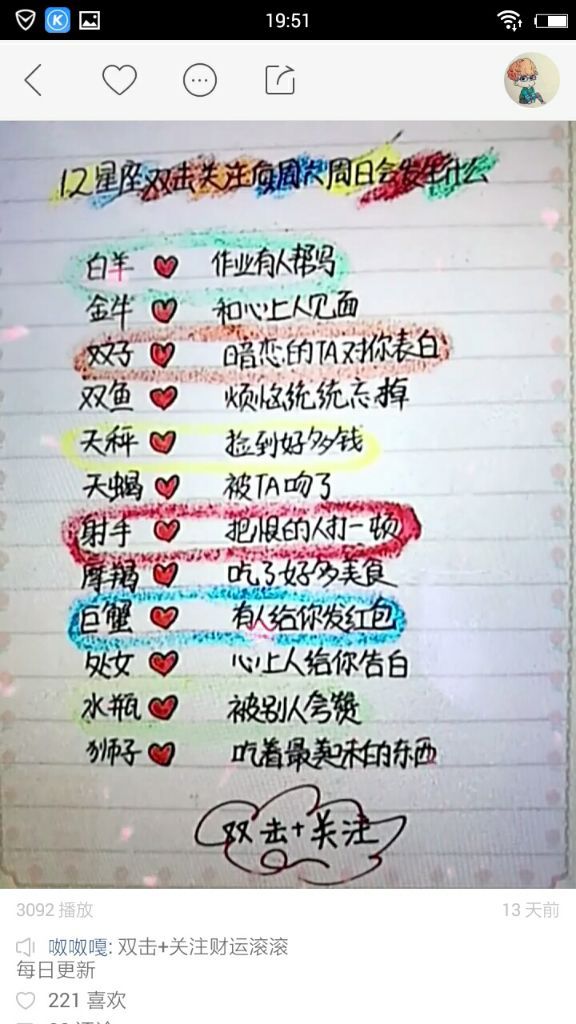 19:51
12星座双击关注每周六周日会发生什么
白羊 作业有人帮写
金牛 和心上人见面
双子 暗恋的TA对你表白
双鱼 烦恼统统忘掉
天秤 捡到好多钱
天蝎 被TA吻了
射手 把恨的人打一顿
摩羯 吃了好多美食
巨蟹 有人给你发红包
处女 心上人给你告白
水瓶 被别人夸赞
狮子 吃着最美味的东西
双击+关注
3092 播放 13 天前
呶呶嘎: 双击+关注财运滚滚
每日更新
221 喜欢